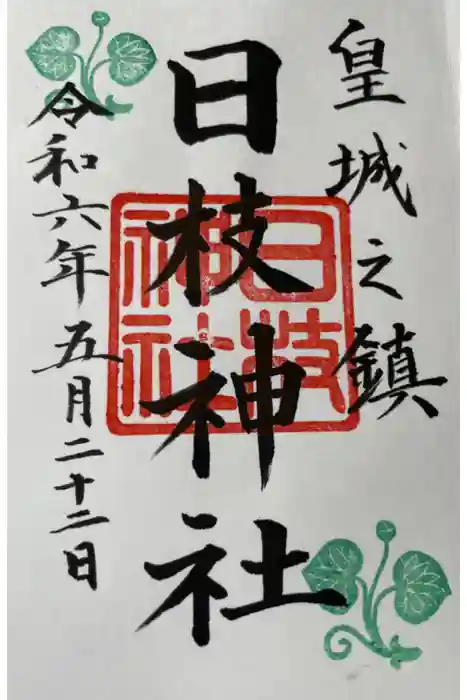 皇城之鎮
日枝神社
日枝神社
令和六年五月二十二日